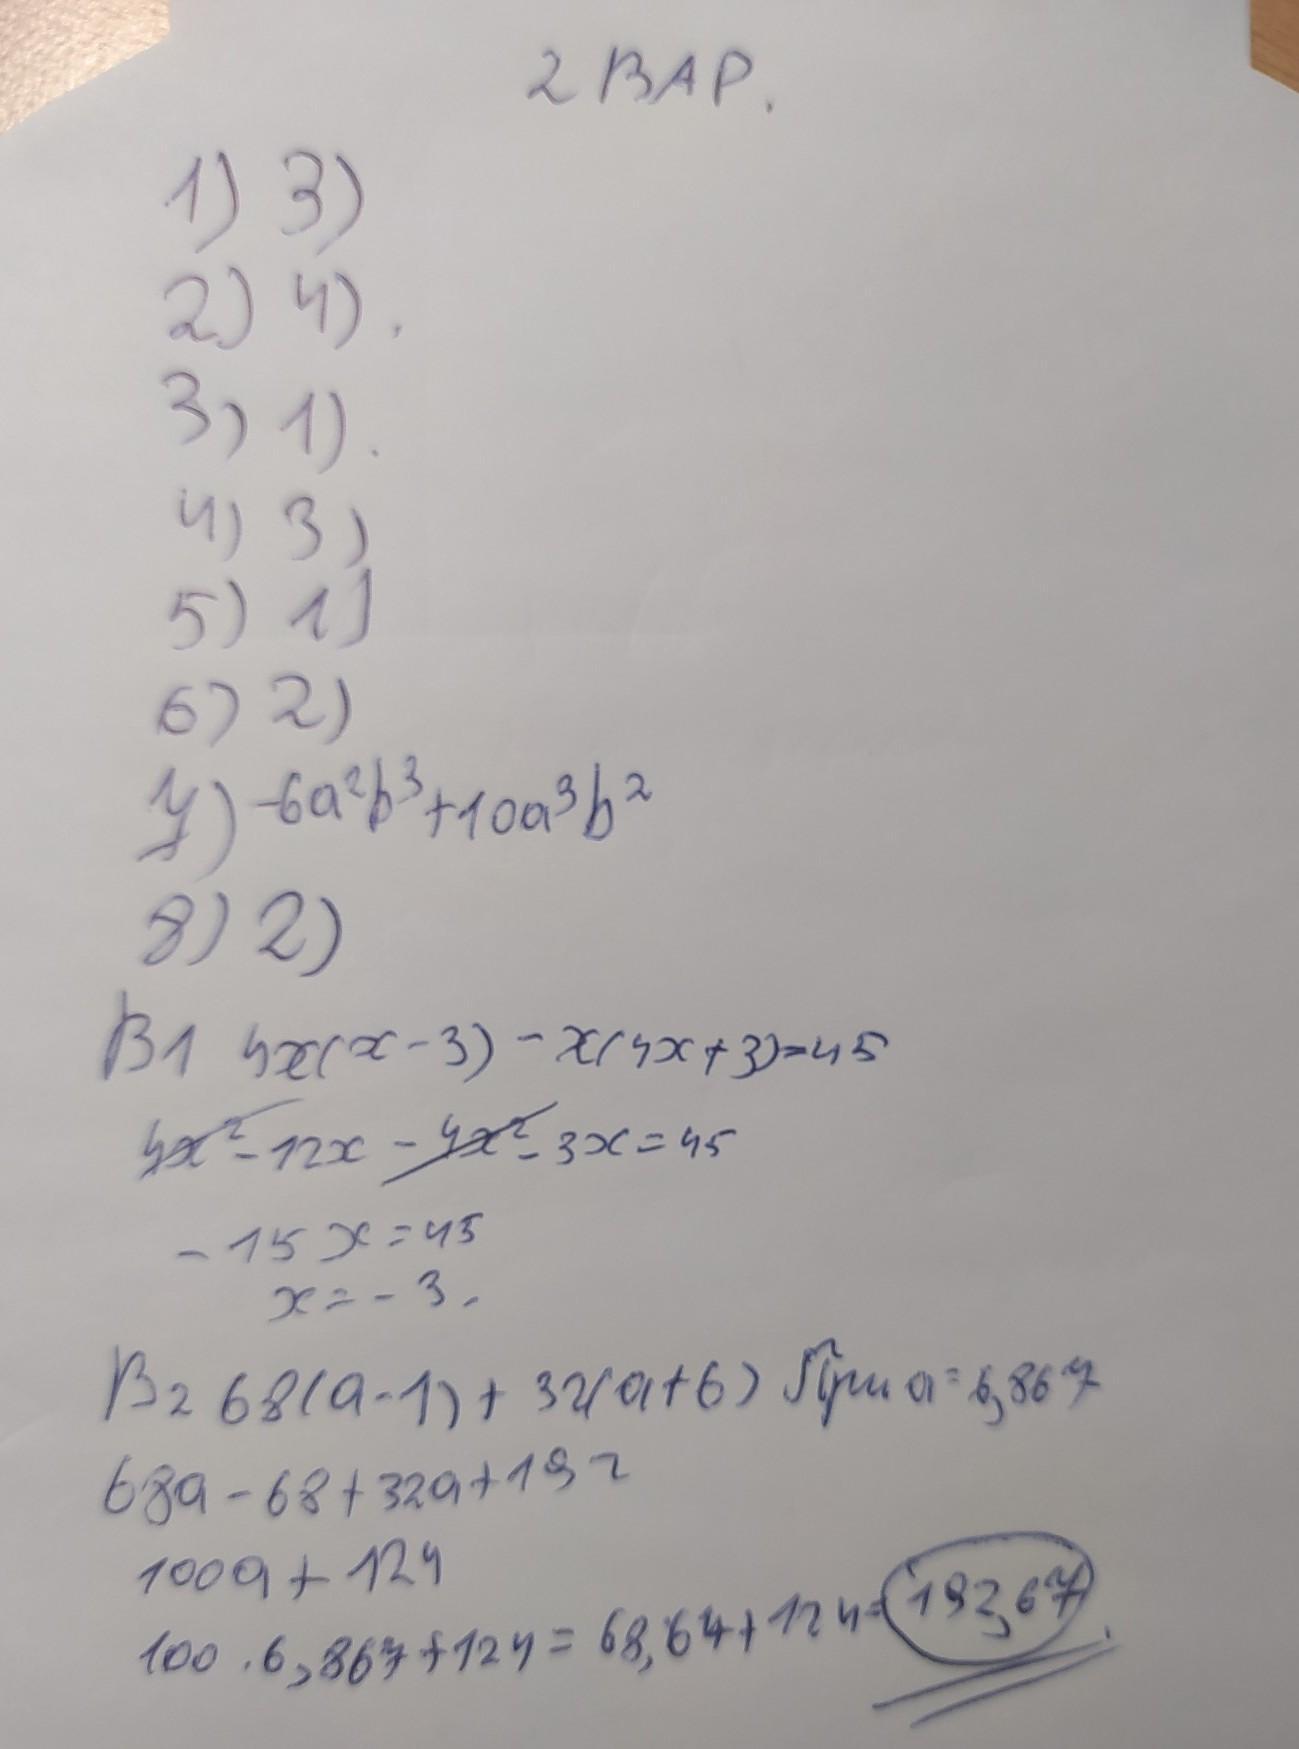 2 ВАР.
1) 3)
2) 4).
3) 1).
4) 3)
5) 1)
6) 2)
7) -6a²b³+10a³b²
8) 2)
B1 4x(x-3)-x(4x+3)=45
4x²-12x-4x²-3x=45
-15x=45
x=-3.
B2 68(a-1)+32(a+6) При a=6,867
68a-68+32a+192
100a+124
100·6,867+124=68,67+124=192,67.